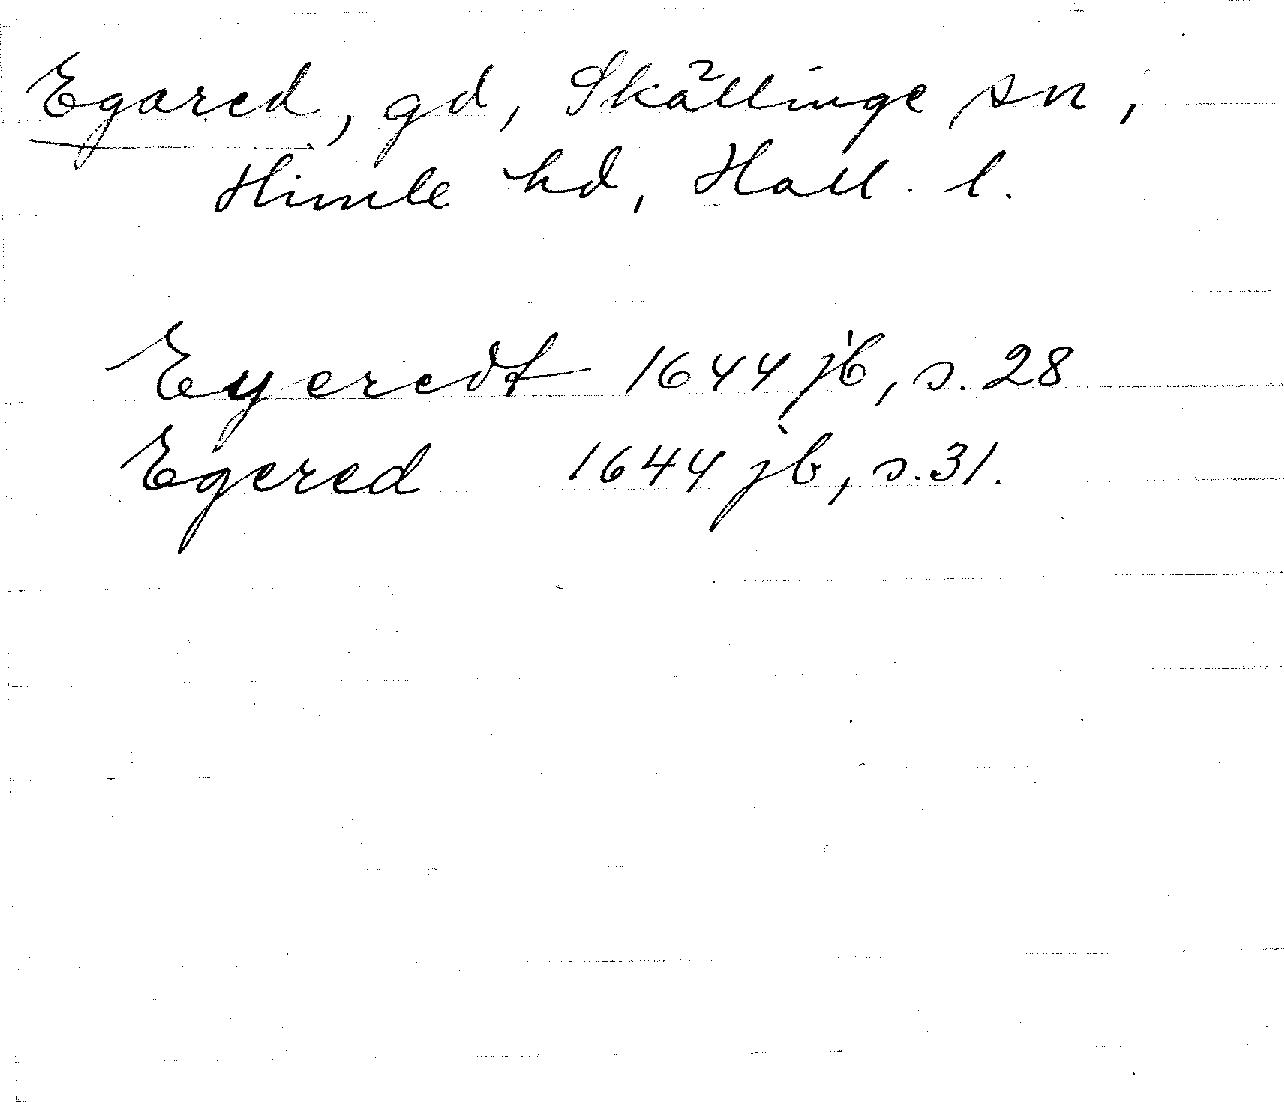 Egared, gd, Skällinge sn,
Himle hd, Hall. l.
Eyeredt 1644 jb, s. 28
Egered 1644 jb, s. 31.